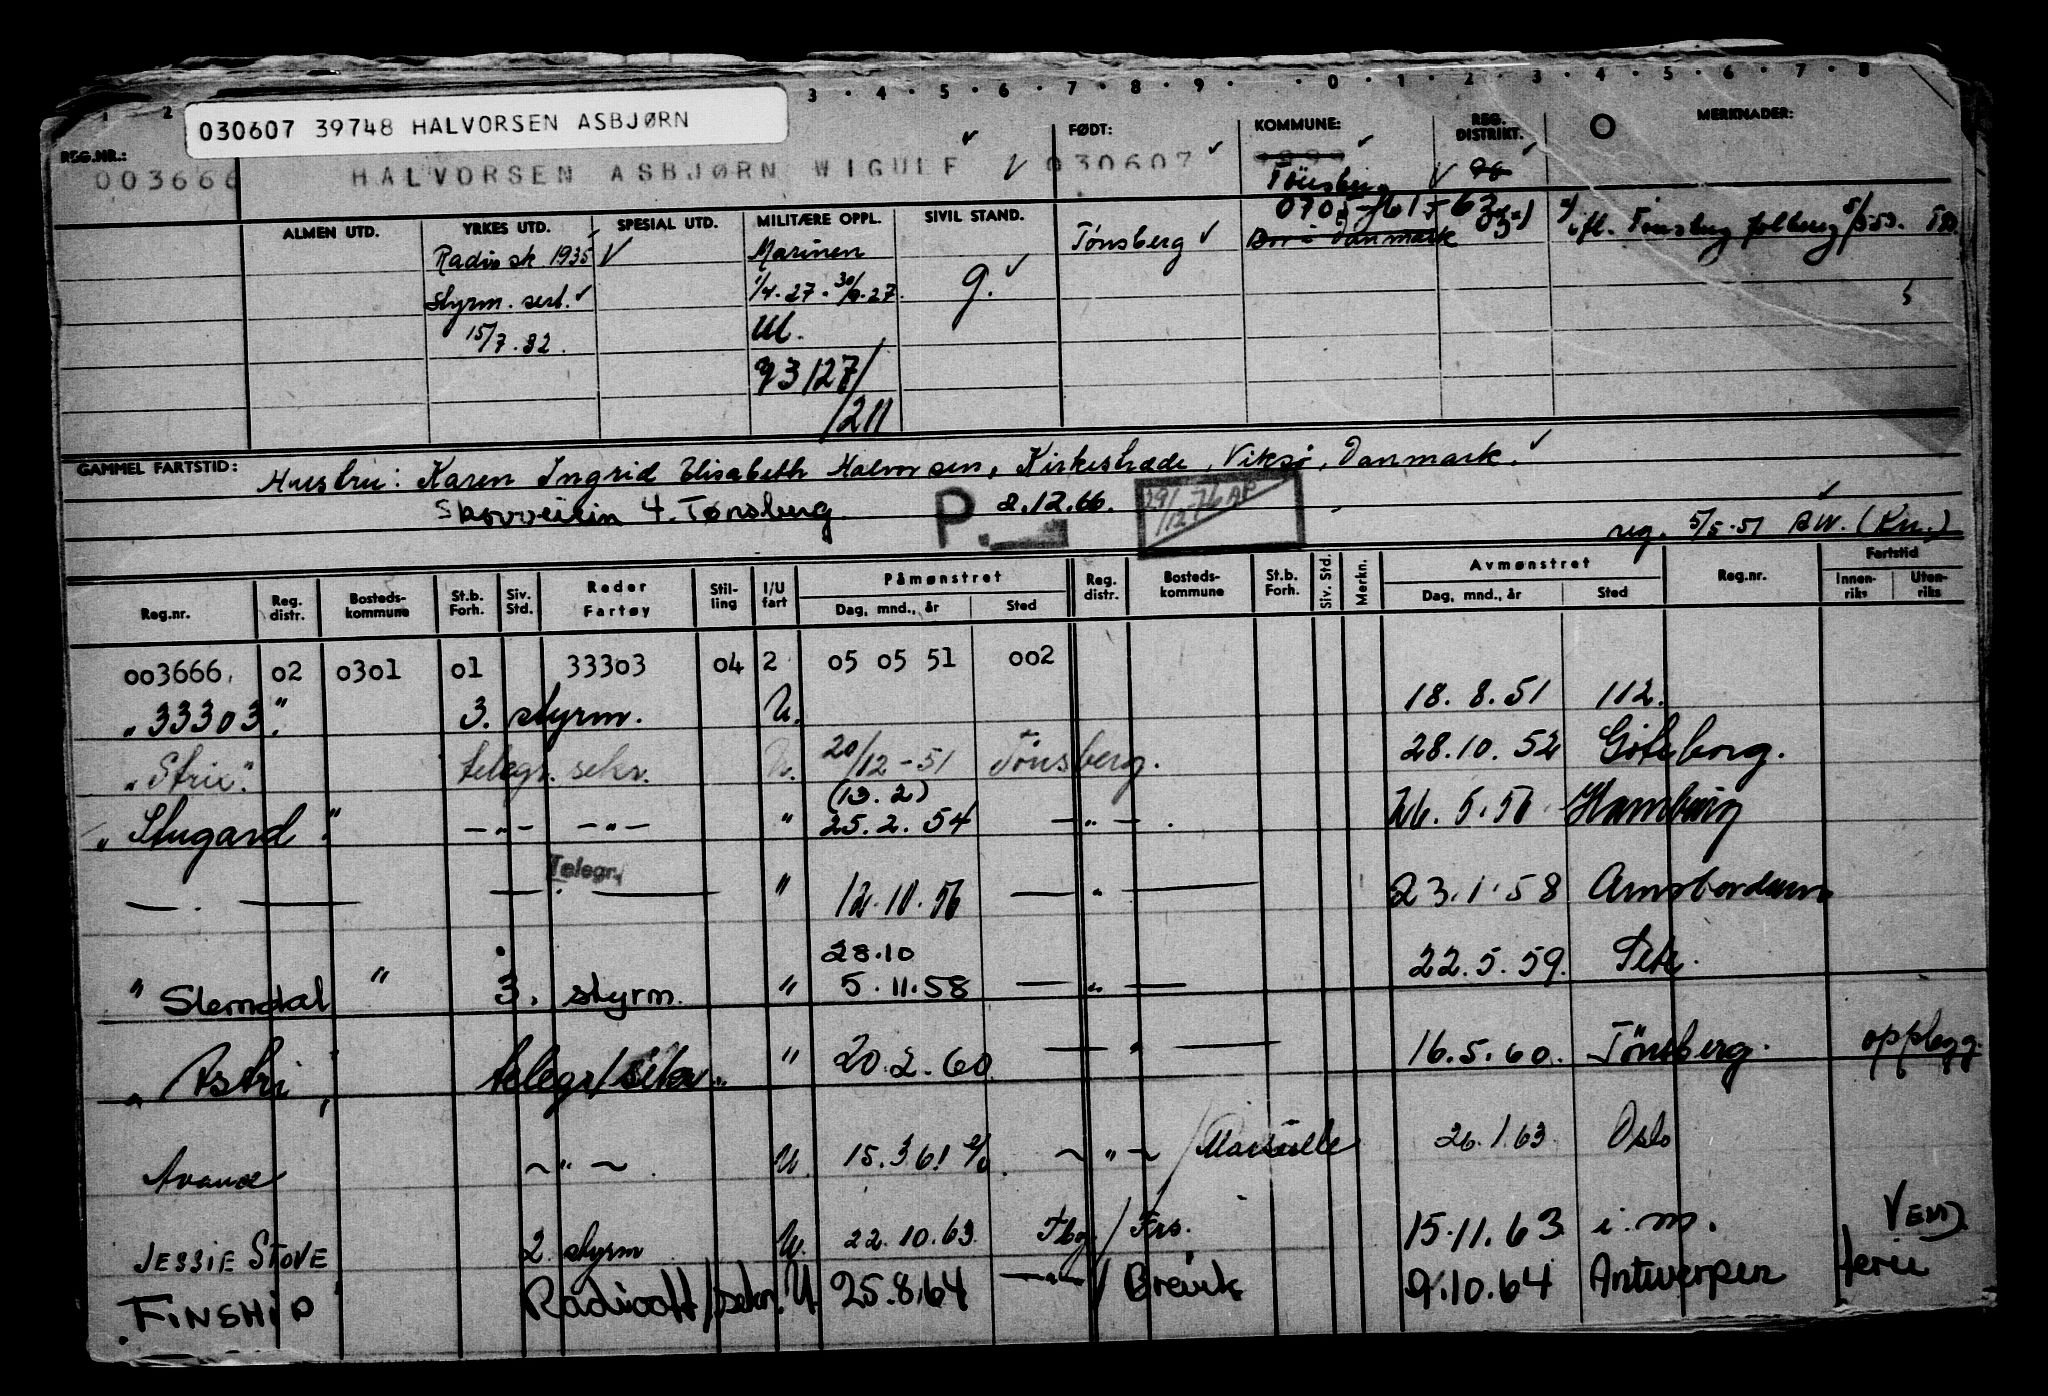 1 2 3 · 4 · 5 · 6 · 7 · 8 · 9 · 0 · 1 · 2 · 3 · 4 · 5 · 6 · 7 · 8
030607 39748 HALVORSEN ASBJØRN
REG.NR.: FØDT: KOMMUNE: REG. DISTRIKT. MERKNADER:
003666 HALVORSEN ASBJØRN WIGULF 030607
Tönsberg
ALMEN UTD. YRKES UTD. SPESIAL UTD. MILITÆRE OPPL. SIVIL STAND.
Radio sk. 1935 Marinen Tønsberg Bor i Danmark
Styrm. sert. 1/4.27 - 30/9.27 g.
15/7.32. Ul.
93/27/
/211
GAMMEL FARTSTID: Hustru: Karen Ingrid Elisabeth Halvorsen, Kirkestræde, Viksø, Danmark.
Skovveien 4. Tønsberg. P. 2.12.66. 29/12 76 AP
reg. 5/5.51 AW. (Kn.)
Reg.nr. Reg. distr. Bosteds-kommune St.b. Forh. Siv. Std. Reder Fartøy Stil-ling I/U fart Påmønstret Dag, mnd., år Sted Reg. distr. Bosteds-kommune St.b. Forh. Siv. Std. Merkn. Avmønstret Dag, mnd., år Sted Reg.nr. Fartstid Innen-riks Uten-riks
003666. 02 0301 01 33303 04 2 05 05 51 002
"33303" 3. styrm. U. 18. 8. 51 112.
"Strix" telegr. sekr. U. 20/12-51 Tönsberg. 28.10. 52 Göteborg.
(13. 2)
"Stugard" -"- -"- " 25. 2. 54 -"- 26. 5. 56 Hamburg
Telegr.
— " — " 12.10.56 — " — 23.1.58 Amsterdam
28.10
"Slemdal" 3. styrm. " 5.11.58 — " — 22.5.59.
"Astri" telegr/sekr. " 20.2.60 — " — 16.5.60. Tönsberg. opplegg.
Avance ~ " ~ U. 15.3.61 ~ " ~ / Marseille 26.1.63 Oslo
JESSIE STOVE 2. styrm U. 22.10.63. Tbg. / Frs. 15.11.63 i. m. VENJ.
FINSHIP Radiooff/sekr. U 25.8.64 —"— / Brevik 9.10.64 Antwerpen ferie